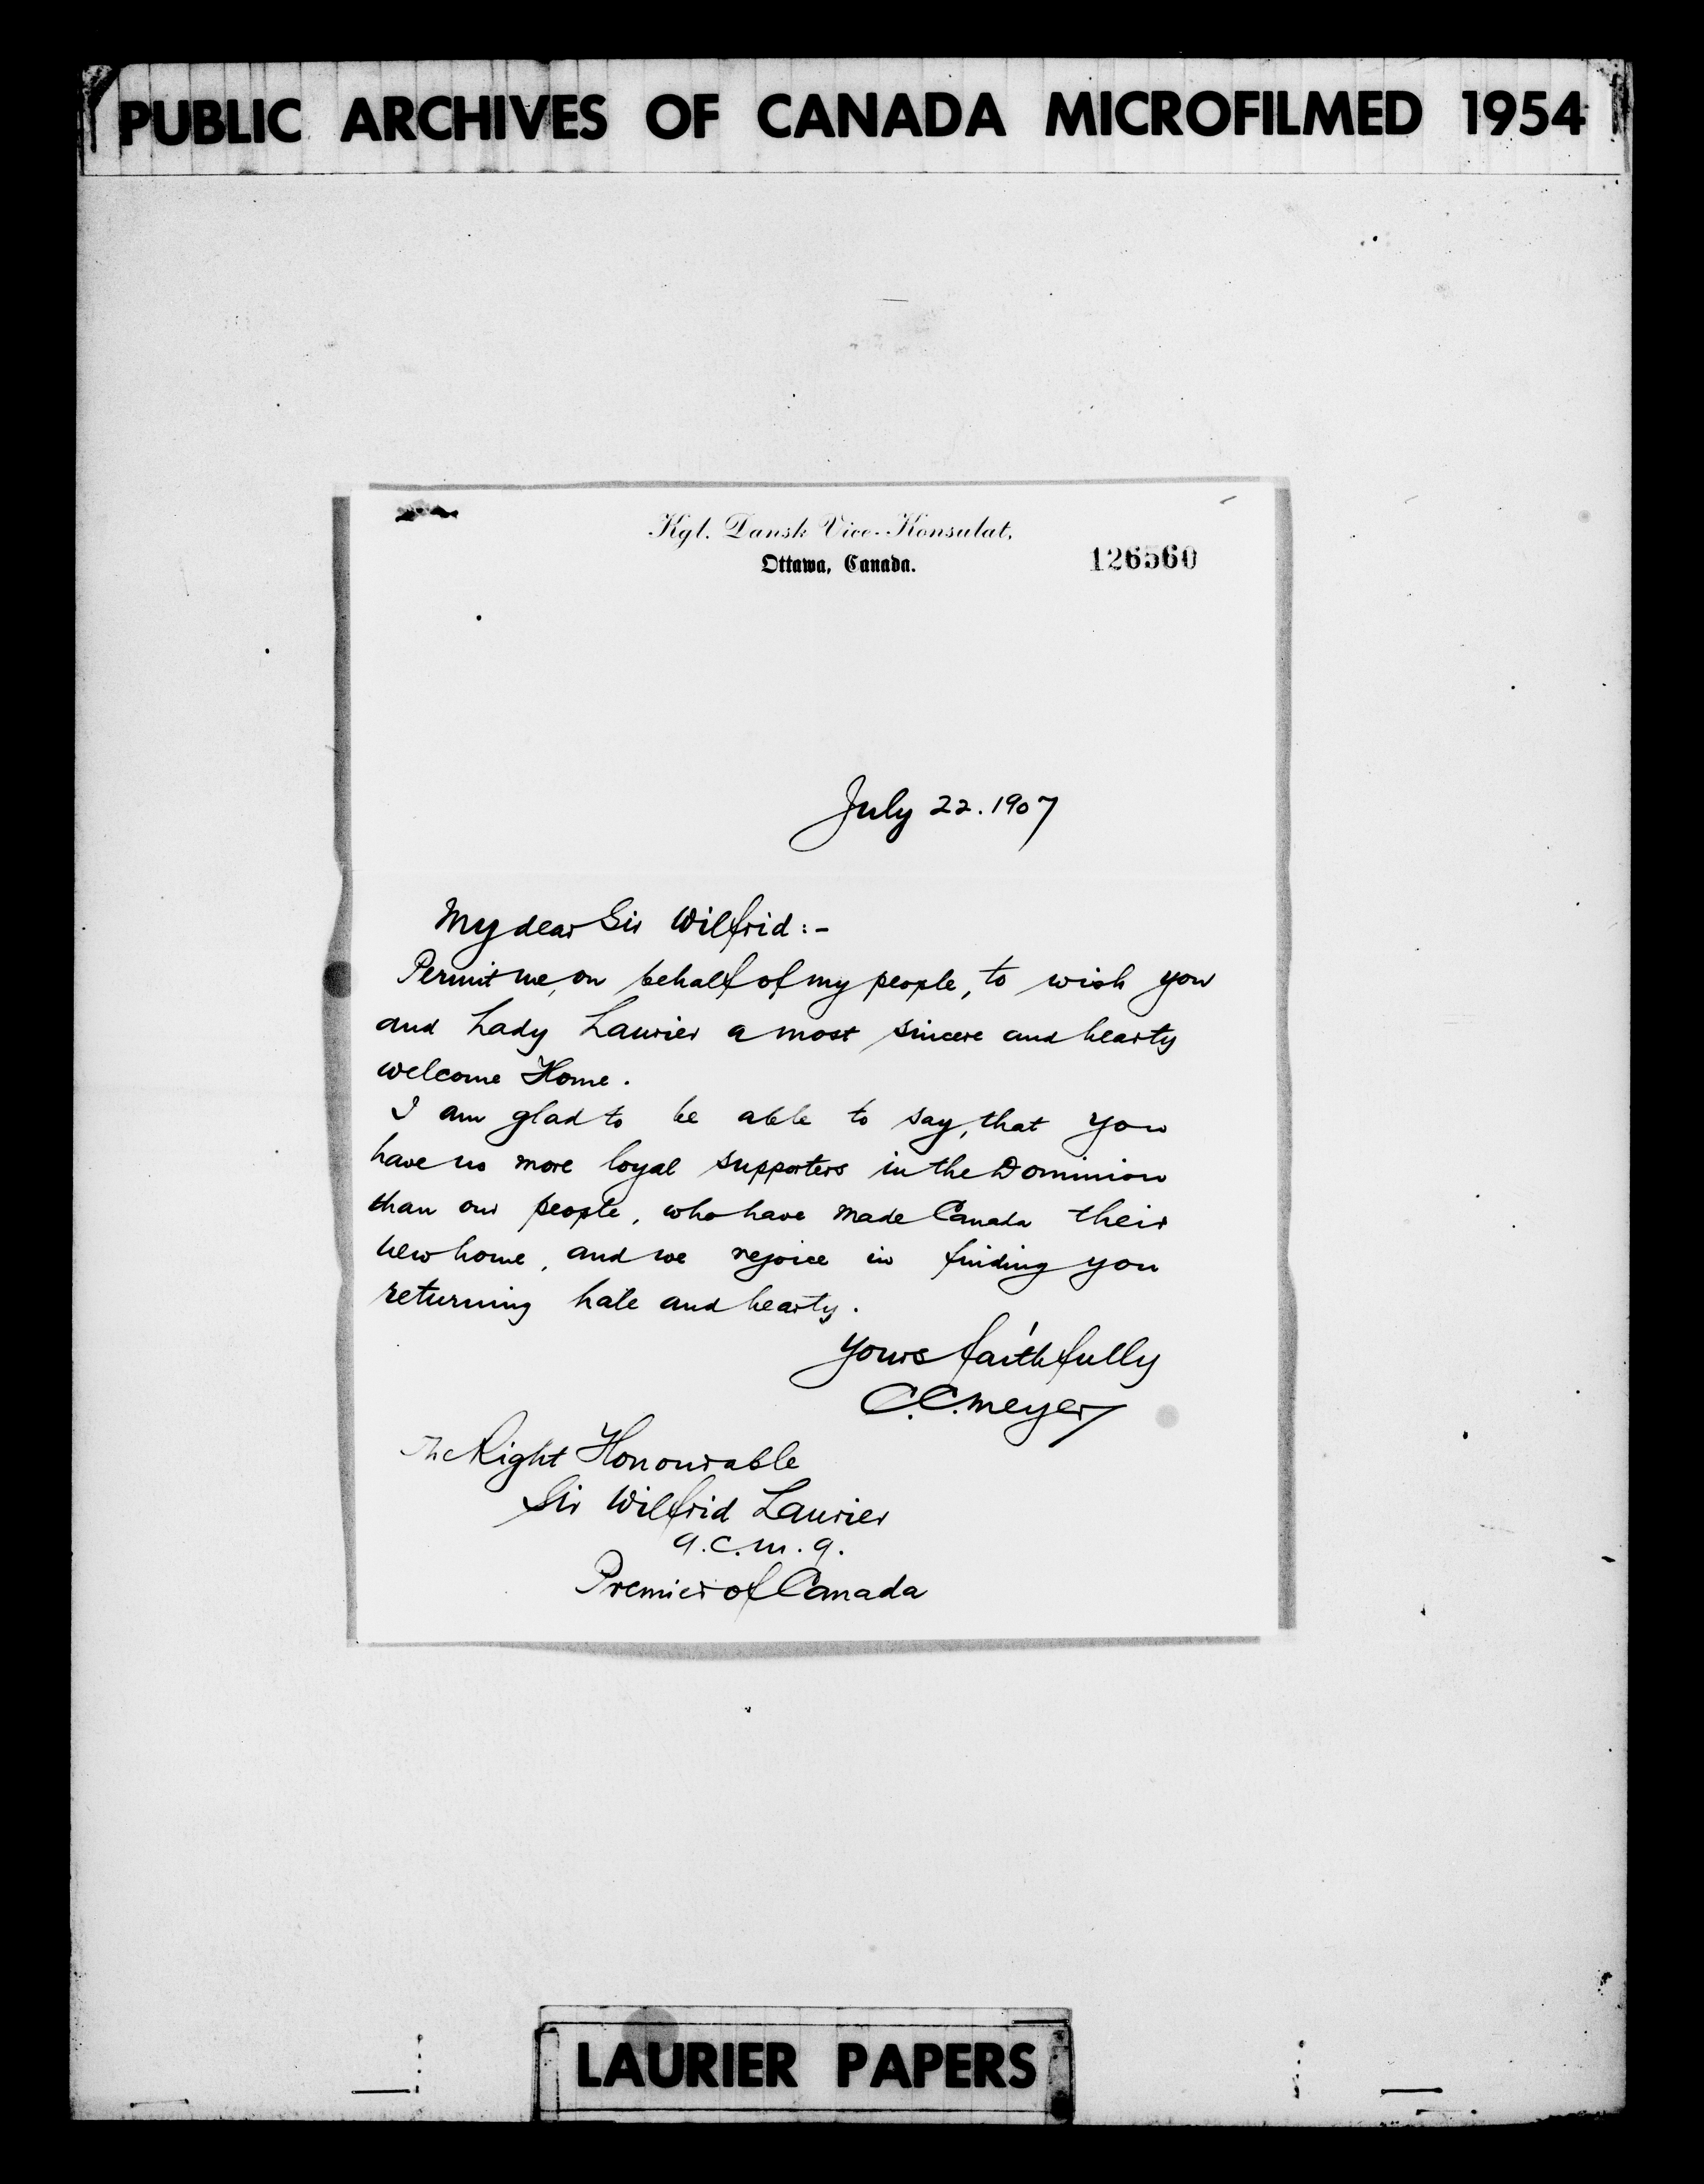 PUBLIC ARCHIVES OF CANADA MICROFILMED 1954
Kgl. Dansk Vice-Konsulat,
Ottawa, Canada.
126560
July 22. 1907
My dear Sir Wilfrid:-
Permit me, on behalf of my people, to wish you
and Lady Laurier a most sincere and hearty
welcome Home.
I am glad to be able to say, that you
have no more loyal supporters in the Dominion
than our people, who have made Canada their
new home, and we rejoice in finding you
returning hale and hearty.
Yours faithfully
C.C. Meyer
The Right Honourable
Sir Wilfrid Laurier
G.C.M.G.
Premier of Canada
LAURIER PAPERS